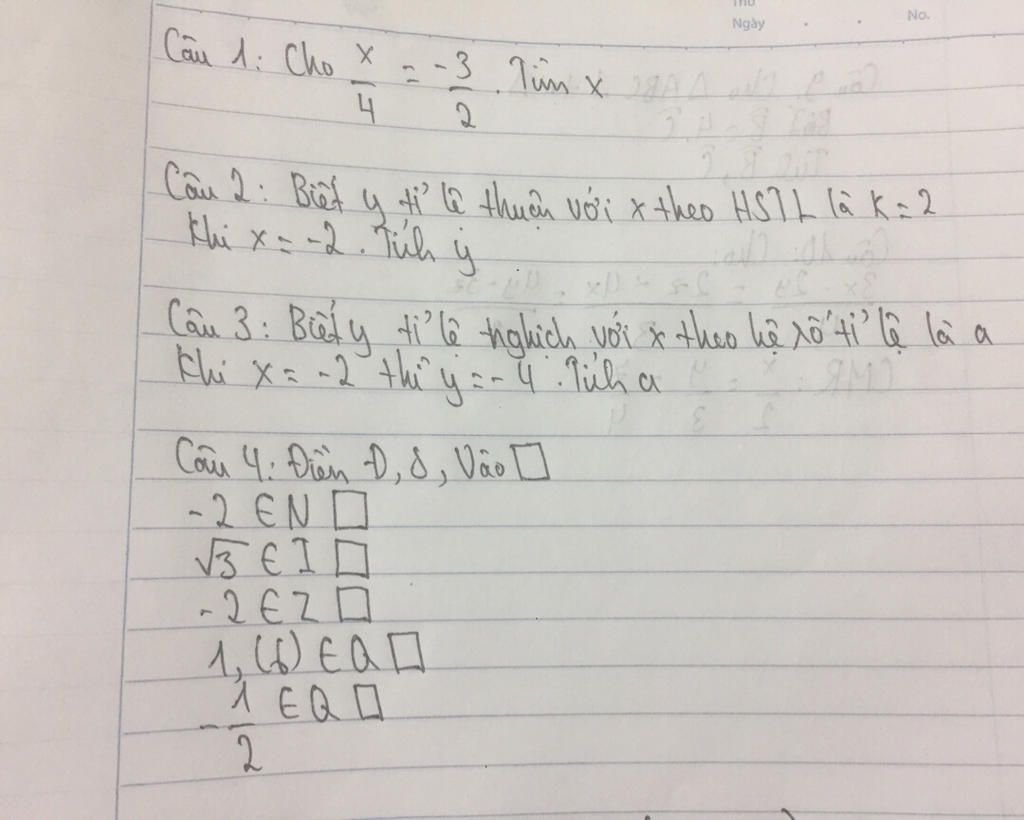 Thứ
Ngày . . No.
Câu 1: Cho x/4 = -3/2. Tìm x
Câu 2: Biết y tỉ lệ thuận với x theo HSTL là k = 2
Khi x = -2. Tính y
Câu 3: Biết y tỉ lệ nghịch với x theo hệ số tỉ lệ là a
Khi x = -2 thì y = -4. Tính a
Câu 4: Điền Đ, S, Vào □
-2 ∈ N □
√3 ∈ I □
-2 ∈ Z □
1,(6) ∈ Q □
-1/2 ∈ Q □